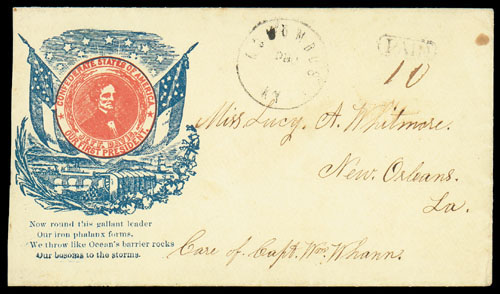 CONFEDERATE STATES OF AMERICA
JEFF. DAVIS.
OUR FIRST PRESIDENT.
Now round this gallant leader
Our iron phalanx forms,
We throw like Ocean's barrier rocks
Our bosoms to the storms.
COLUMBUS
KY
PAID
10
Miss. Lucy. A. Whitmore.
New. Orleans.
La.
Care of Capt. Wm. Whann.